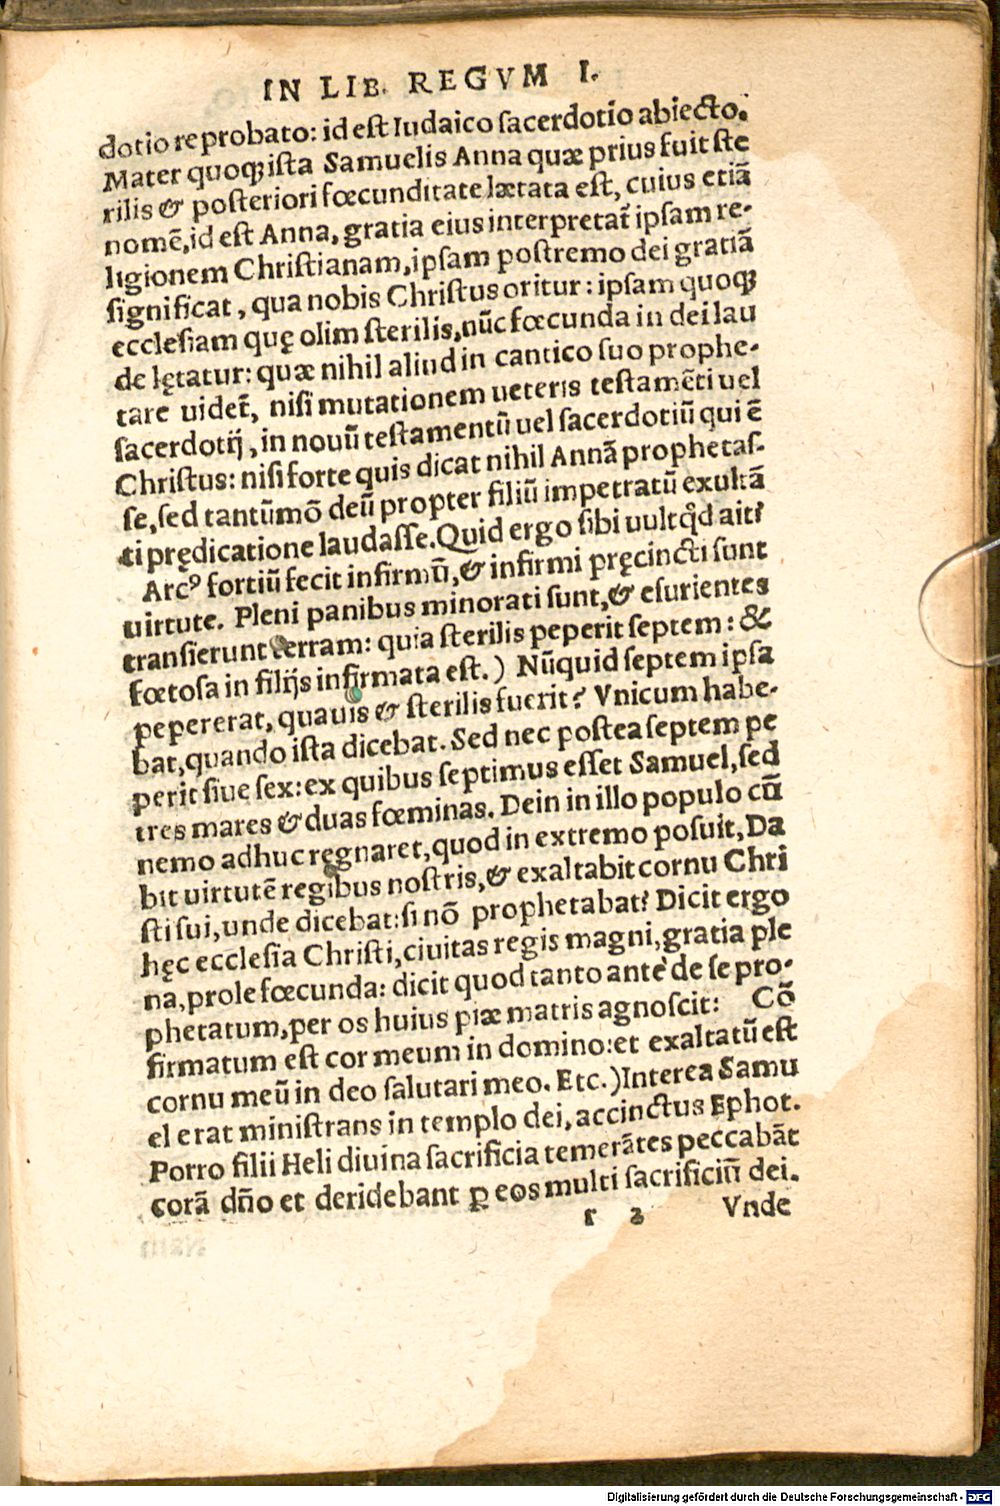 IN LIB. REGVM I.
dotio reprobato: id est Iudaico sacerdotio abiecto.
Mater quoqꝫ ista Samuelis Anna quæ prius fuit ste
rilis & posteriori fœcunditate lætata est, cuius etiā
nomē, id est Anna, gratia eius interpretat̄ ipsam re-
ligionem Christianam, ipsam postremo dei gratiā
significat, qua nobis Christus oritur: ipsam quoqꝫ
ecclesiam quę olim sterilis, nūc fœcunda in dei lau
de lętatur: quæ nihil aliud in cantico suo prophe-
tare uidet̄, nisi mutationem ueteris testamēti uel
sacerdotij, in nouū testamentū uel sacerdotiū qui ē
Christus: nisi forte quis dicat nihil Annā prophetas-
se, sed tantūmō deū propter filiū impetratū exultā
ti prędicatione laudasse. Quid ergo sibi uult qd̓ ait?
Arcꝰ fortiū fecit infirmū, & infirmi pręcincti sunt
uirtute. Pleni panibus minorati sunt, & esurientes
transierunt terram: quia sterilis peperit septem: &
fœtosa in filijs infirmata est.) Nūquid septem ipsa
pepererat, quauis & sterilis fuerit? Vnicum habe-
bat, quando ista dicebat. Sed nec postea septem pe
perit siue sex: ex quibus septimus esset Samuel, sed
tres mares & duas fœminas. Dein in illo populo cū
nemo adhuc regnaret, quod in extremo posuit, Da
bit uirtutē regibus nostris, & exaltabit cornu Chri
sti sui, unde dicebat: si nō prophetabat? Dicit ergo
hęc ecclesia Christi, ciuitas regis magni, gratia ple
na, prole fœcunda: dicit quod tanto antè de se pro-
phetatum, per os huius piæ matris agnoscit: Cō
firmatum est cor meum in domino: et exaltatū est
cornu meū in deo salutari meo. Etc.) Interea Samu
el erat ministrans in templo dei, accinctus Ephot.
Porro filii Heli diuina sacrificia temerātes peccabāt
corā dn̄o et deridebant ꝑ eos multi sacrificiū dei.
r 2 Vnde
Digitalisierung gefördert durch die Deutsche Forschungsgemeinschaft - DFG